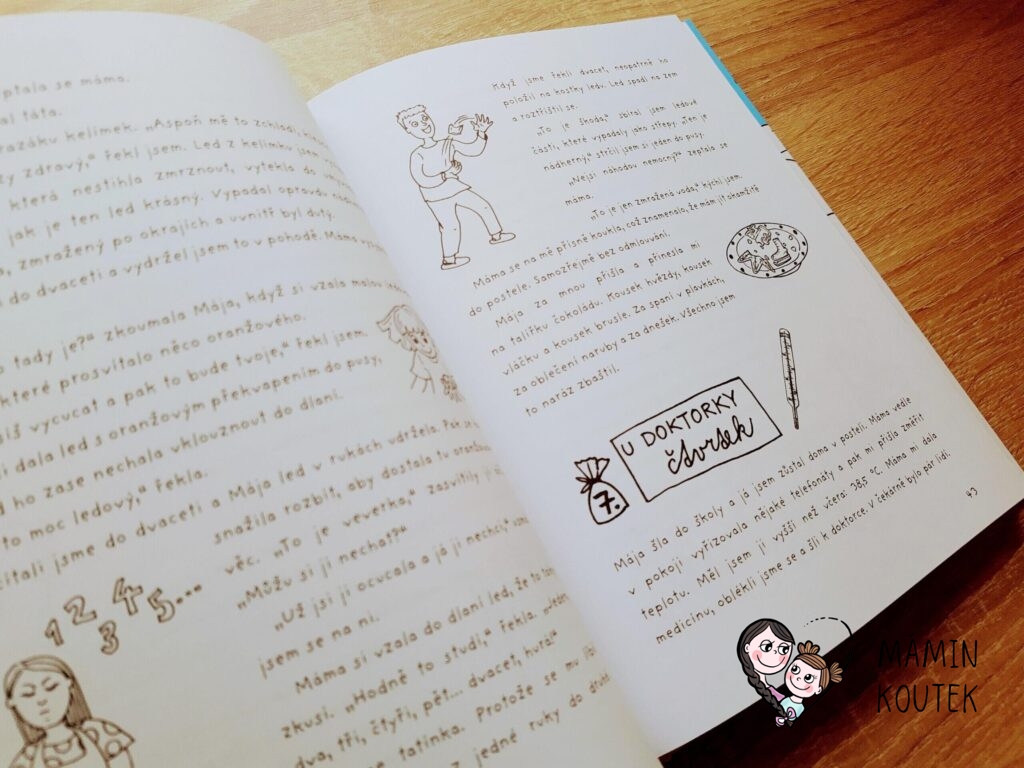 ptala se máma.
al táta.
razáku kelímek. „Aspoň mě to zchladí,
zy zdravý,“ řekl jsem. Led z kelímku jsem
která nestihla zmrznout, vytekla do
jak je ten led krásný. Vypadal opravdu
zmražený po okrajích a uvnitř byl dutý.
do dvaceti a vydržel jsem to v pohodě. Máma
tady je?“ zkoumala Mája, když si vzala malou
které prosvítalo něco oranžového.
vycucat a pak to bude tvoje,“ řekl jsem
dala led s oranžovým překvapením do pusy,
ho zase nechala vklouznout do dlaní.
to moc ledový,“ řekla.
jsme do dvaceti a Mája led v rukách udržela. Pak se
snažila rozbít, aby dostala tu oranžovou
věc. „To je veverka,“ zasvítily jí
„Můžu si ji nechat?“
„Už jsi ji ocucala a já ji nechci“
jsem se na ni.
Máma si vzala do dlaní led, že to
zkusí. „Hodně to studí,“ řekla.
dva, tři, čtyři, pět... dvacet, hurá“
tatínka. Protože se mu
z jedné ruky do
1 2 3 4 5...
Když jsme řekli dvacet, neopatrně ho
položil na kostky ledu. Led spadl na zem
a roztříštil se.
„To je škoda,“ sbíral jsem ledové
části, které vypadaly jako střepy. „Ten je
nádherný,“ strčil jsem si jeden do pusy.
„Nejsi náhodou nemocný?“ zeptala se
máma.
„To je jen zmražená voda,“ kýchl jsem.
Máma se na mě přísně koukla, což znamenalo, že mám jít okamžitě
do postele. Samozřejmě bez odmlouvání.
Mája za mnou přišla a přinesla mi
na talířku čokoládu. Kousek hvězdy, kousek
vláčku a kousek brusle. Za spaní v plavkách,
za oblečení naruby a za dnešek. Všechno jsem
to naráz zbaštil.
7.
U DOKTORKY
čtvrtek
Mája šla do školy a já jsem zůstal doma v posteli. Máma vedle
v pokoji vyřizovala nějaké telefonáty a pak mi přišla změřit
teplotu. Měl jsem ji vyšší než včera: 38,5 °C. Máma mi dala
medicínu, oblékli jsme se a šli k doktorce. V čekárně bylo pár lidí.
43
MAMIN
KOUTEK